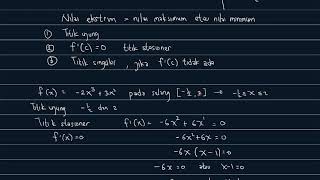 Nilai ekstrim = nilai maksimum atau nilai minimum
① Titik ujung
② f'(c) = 0 titik stasioner
③ Titik singular, jika f'(c) tidak ada
f(x) = -2x³ + 3x² pada selang [-½, 2] → -½ ≤ x ≤ 2
Titik ujung -½ dan 2
Titik stasioner f'(x) = -6x² + 6x = 0
f'(x) = 0 -6x² + 6x = 0
-6x (x-1) = 0
-6x = 0 atau x-1 = 0